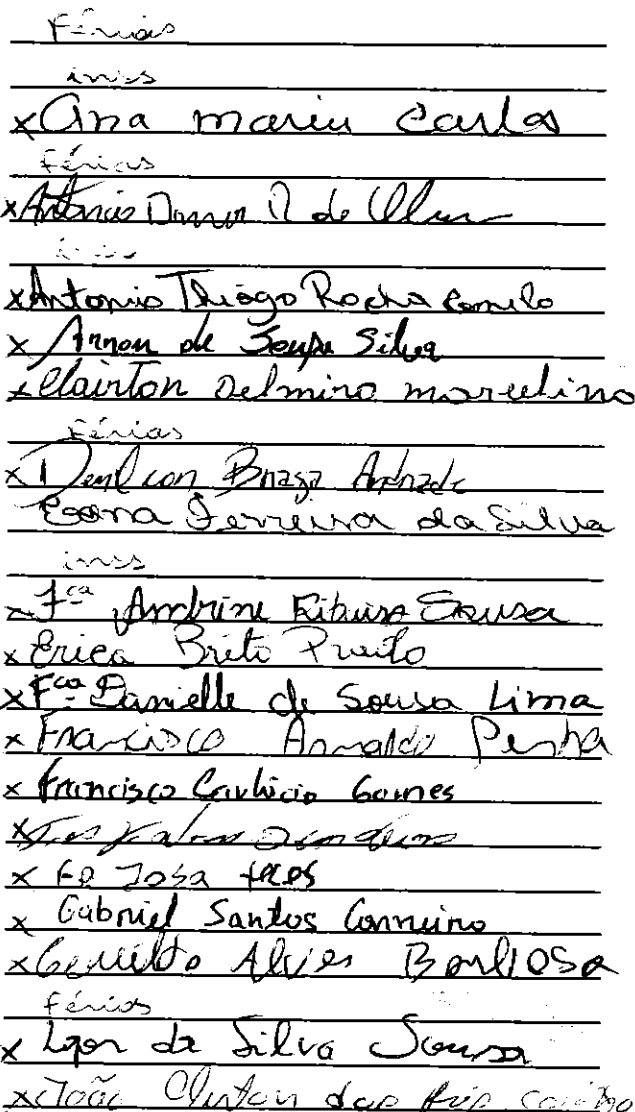 Férias
inss
x Ana maria Carlos
Férias
x Antonio R de
inss
x Antonio Thiago Rocha Camilo
x Arnon de Souza Silva
x Clairton Delmino marcelino
Férias
x Denilson Braga Andrade
Ferreira da Silva
inss
x Fca Andrine Ribeiro Sousa
x Erica Brito
x Fca Danielle de Sousa Lima
x Francisco Arnaldo Penha
x Francisco Gomes
x
x Fco José
x Gabriel Santos Carneiro
x Genildo Alves Barbosa
Férias
x Igor da Silva Sousa
x João dos